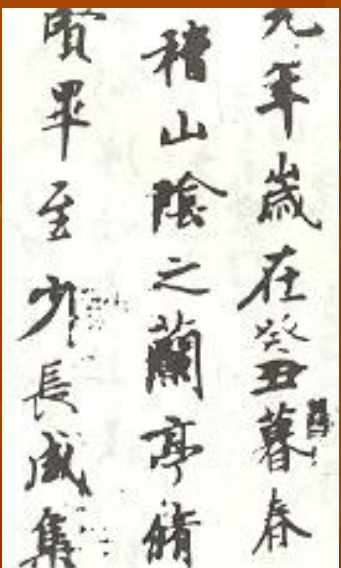 元年歲在癸丑暮春
稽山陰之蘭亭脩
賢畢至少長咸集